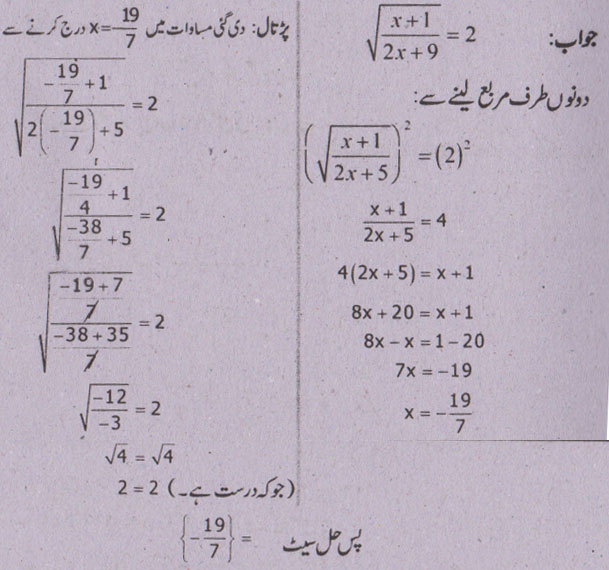 جواب: √((x+1)/(2x+9)) = 2
دونوں طرف مربع لینے سے:
(√((x+1)/(2x+5)))² = (2)²
(x+1)/(2x+5) = 4
4(2x+5) = x+1
8x+20 = x+1
8x−x = 1−20
7x = −19
x = −19/7
پڑتال: دی گئی مساوات میں x=−19/7 درج کرنے سے
√((−19/7 +1)/(2(−19/7)+5)) = 2
√((−19/4 +1)/(−38/7 +5)) = 2
√(((−19+7)/7)/((−38+35)/7)) = 2
√(−12/−3) = 2
√4 = √4
2 = 2 (جوکہ درست ہے۔)
پس حل سیٹ = {−19/7}